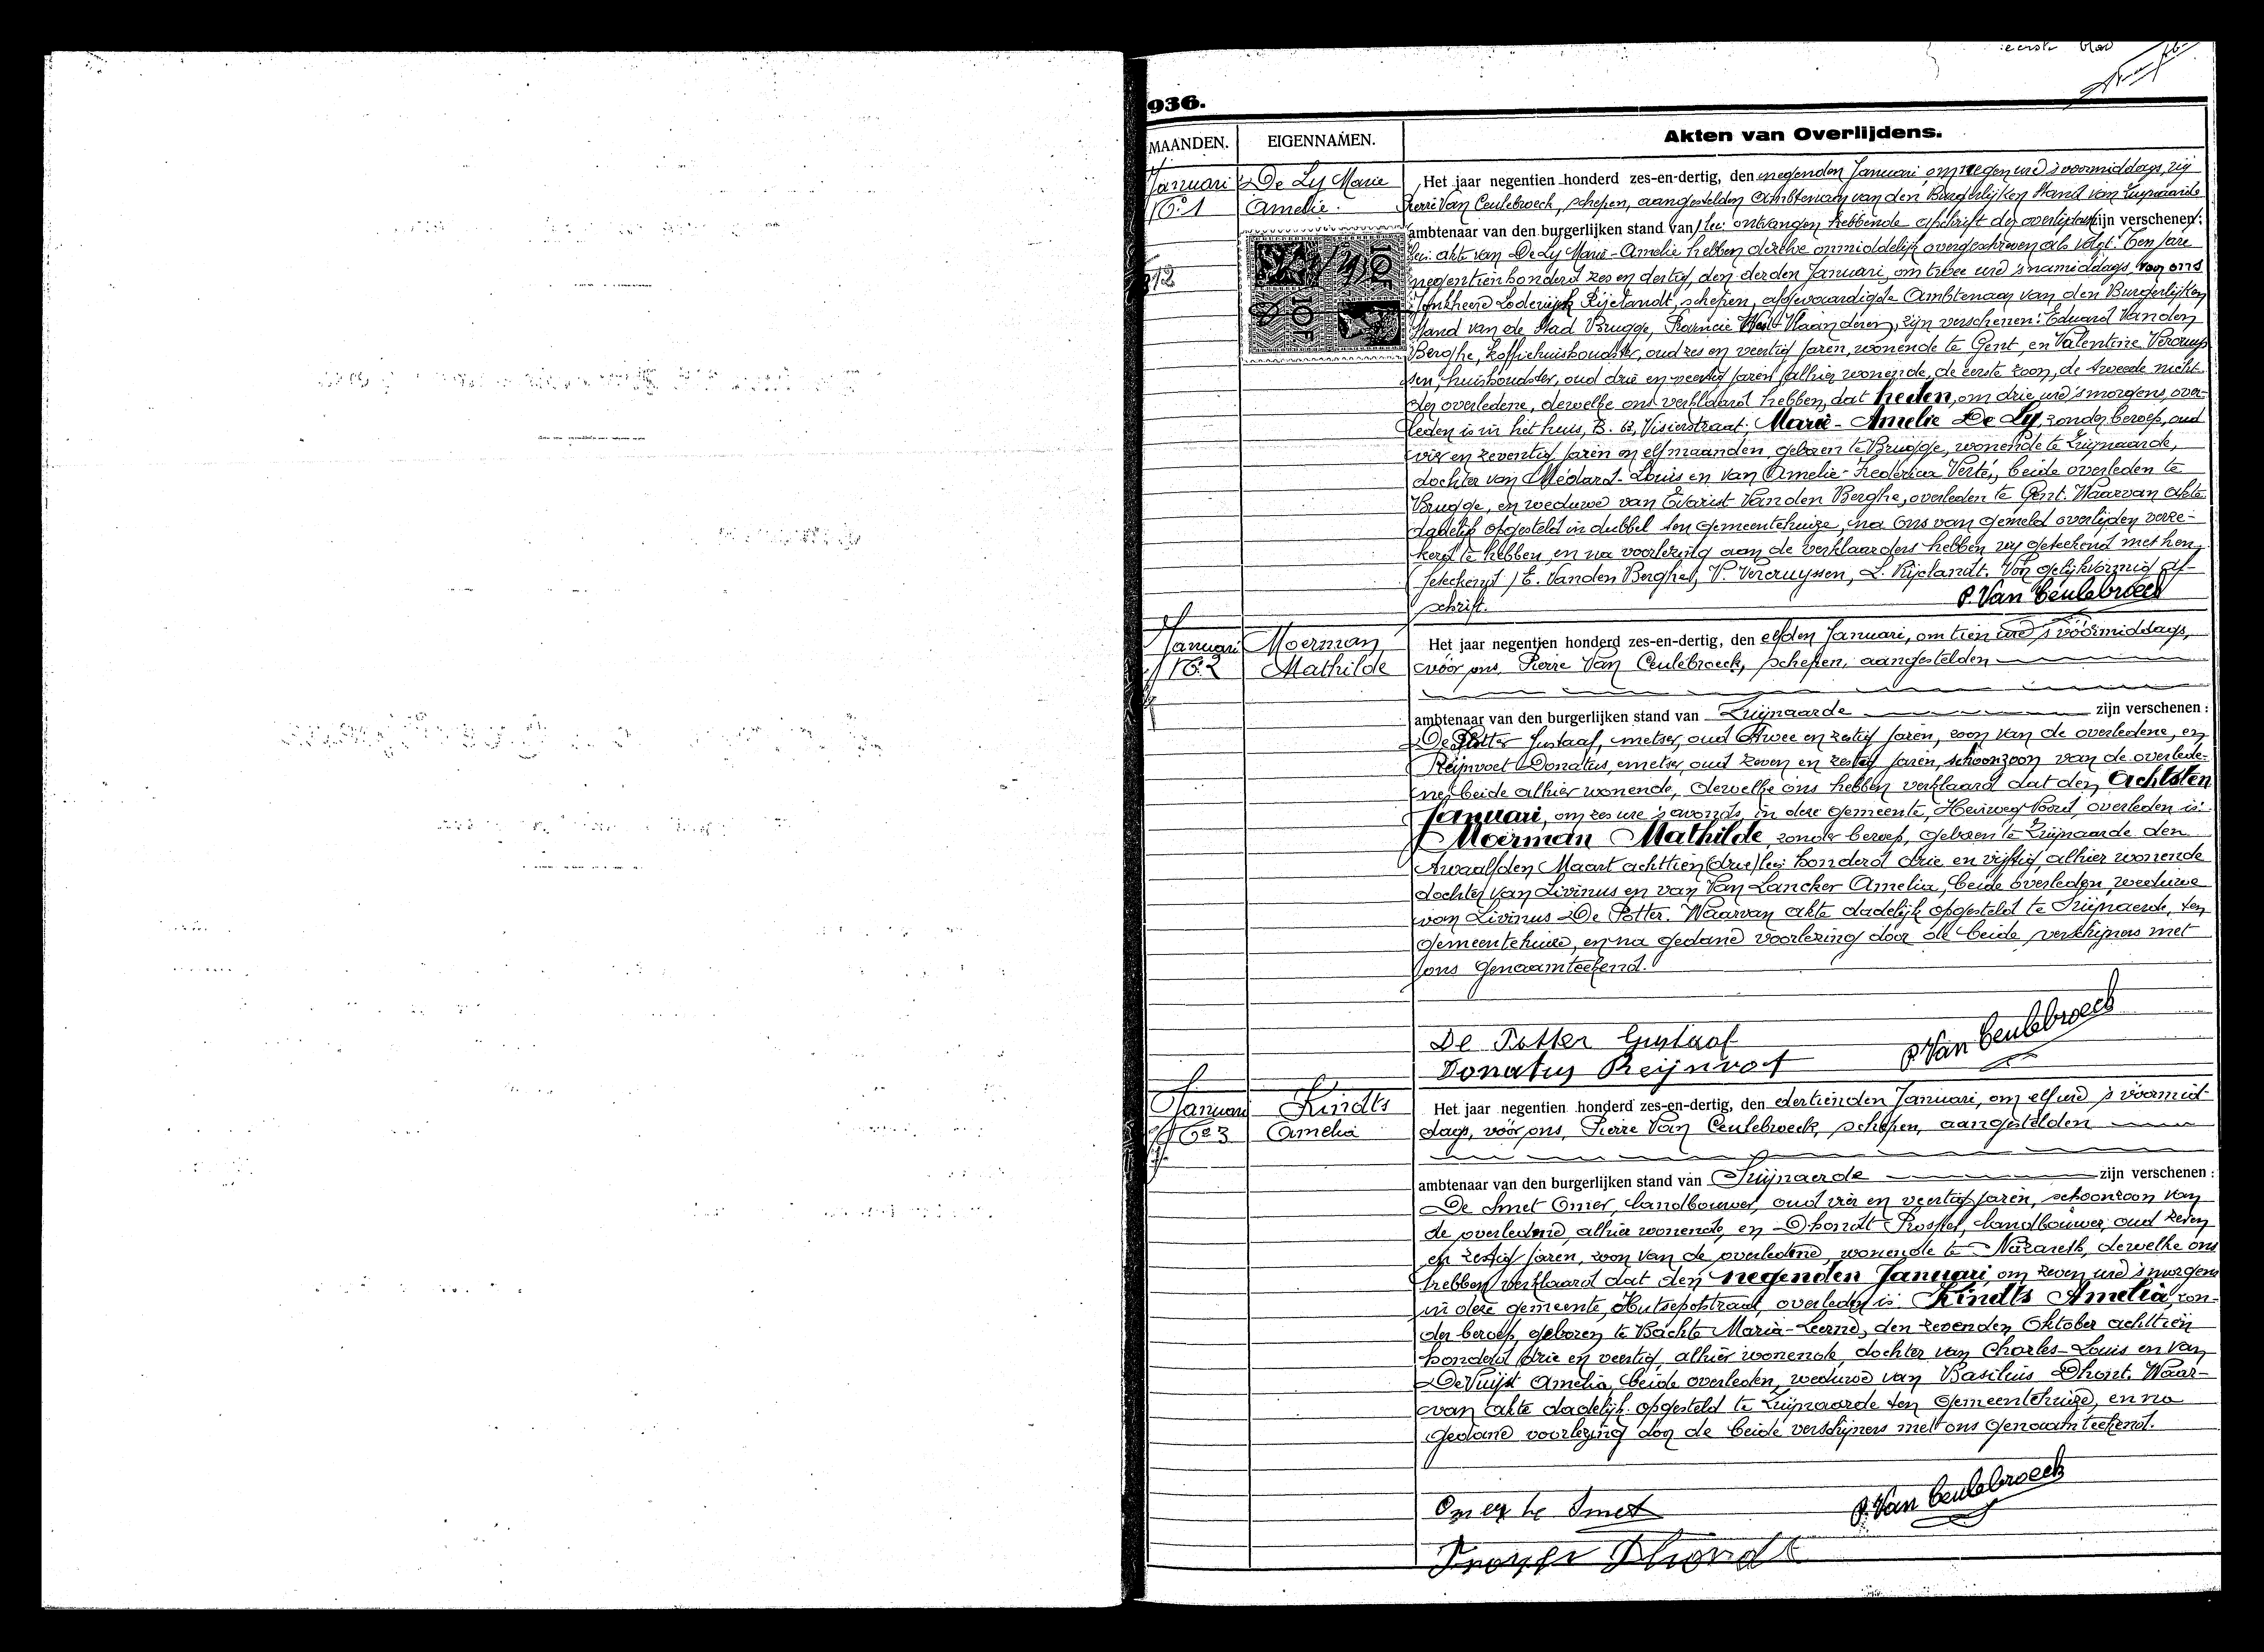 eerste blad
936.
MAANDEN. EIGENNAMEN. Akten van Overlijdens.
Januari De Ly Marie Het jaar negentien honderd zes-en-dertig, den negenden Januari, om negen ure 's voormiddags, wij
No 1 Amelie. Pierre Van Ceulebroeck, schepen, aangestelden Ambtenaar van den Burgerlijken Stand van Zwijnaarde
ambtenaar van den burgerlijken stand van ontvangen hebbende afschrift der overlijdens zijn verschenen:
akte van De Ly Marie-Amelie hebben dezelve onmiddelijk overgeschreven als volgt: Ten jare
negentienhonderd zes en dertig, den derden Januari, om twee ure 's namiddags, voor ons
Jonkheer Lodewijk Rijelandt, schepen, afgevaardigde Ambtenaar van den Burgerlijken
Stand van de Stad Brugge, Provincie West-Vlaanderen, zijn verschenen: Eduard Vanden
Berghe, koffiehuishouder, oud zes en veertig jaren, wonende te Gent, en Valentine Vercruys
sen, huishoudster, oud drie en veertig jaren, alhier wonende, de eerste zoon, de tweede nicht
der overledene, dewelke ons verklaard hebben, dat heden, om drie ure 's morgens, over-
leden is in het huis, B. 63, Visierstraat, Marie-Amelie De Ly, zonder beroep, oud
vier en zeventig jaren en elf maanden, geboren te Brugge, wonende te Zwijnaarde,
dochter van Médard-Louis en van Amelie-Frederica Verté, beide overleden te
Brugge, en weduwe van Evarist Vanden Berghe, overleden te Gent. Waarvan akte
dadelijk opgesteld in dubbel ten gemeentehuize, na ons van gemeld overlijden verze-
kerd te hebben, en na voorlezing aan de verklaarders hebben wij geteekend met hen.
(Geteekend) E. Vanden Berghe, V. Vercruyssen, L. Rijelandt. Voor gelijkvormig af-
schrift. P. Van Ceulebroeck
Januari Moerman Het jaar negentien honderd zes-en-dertig, den elfden Januari, om tien ure 's voormiddags,
No 2 Mathilde vóór ons, Pierre Van Ceulebroeck, schepen, aangestelden
ambtenaar van den burgerlijken stand van Zwijnaarde zijn verschenen:
De Potter Gustaaf, metser, oud twee en zestig jaren, zoon van de overledene, en
Reijnvoet Donatus, metser, oud zeven en zestig jaren, schoonzoon van de overlede-
ne, beide alhier wonende, dewelke ons hebben verklaard dat den achtsten
Januari, om zes ure 's avonds, in deze gemeente, Heirweg Noord, overleden is:
Moerman Mathilde zonder beroep, geboren te Zwijnaarde den
twaalfden Maart achttien (drie) honderd drie en vijftig, alhier wonende
dochter van Livinus en van Van Lancker Amelia, beide overleden, weduwe
van Livinus De Potter. Waarvan akte dadelijk opgesteld te Zwijnaarde, ten
gemeentehuize, en na gedane voorlezing door de beide verschijners met
ons genaamteekend.
De Potter Gustaaf P. Van Ceulebroeck
Donatus Reijnvoet
Januari Kindts Het jaar negentien honderd zes-en-dertig, den dertienden Januari, om elf ure 's voormid-
No 3 Amelia dags, vóór ons, Pierre Van Ceulebroeck, schepen, aangestelden
ambtenaar van den burgerlijken stand van Zwijnaerde zijn verschenen:
De Smet Omer, landbouwer, oud vier en veertig jaren, schoonzoon van
de overledene, alhier wonende, en Dhondt Prosper, landbouwer, oud zeven
en zestig jaren, zoon van de overledene, wonende te Nazareth, dewelke ons
hebben verklaard dat den negenden Januari om zeven ure 's morgens
in deze gemeente, Hutsepotstraat, overleden is: Kindts Amelia, zon-
der beroep, geboren te Bachte Maria-Leerne, den zevenden Oktober achttien
honderd drie en veertig, alhier wonende, dochter van Charles-Louis en van
De Vuijst Amelia, beide overleden, weduwe van Basilius Dhont. Waar-
van akte dadelijk opgesteld te Zwijnaarde ten gemeentehuize, en na
gedane voorlezing door de beide verschijners met ons genaamteekend.
Omer De Smet P. Van Ceulebroeck
Prosper Dhondt